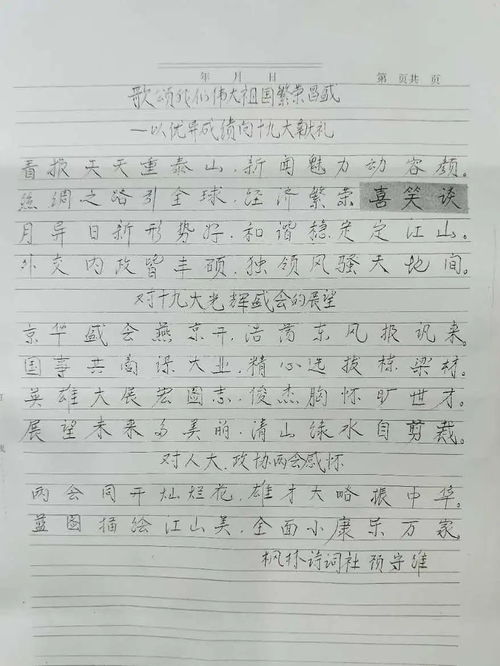 年 月 日 第 页共 页
歌颂我们伟大祖国繁荣昌盛
—以优异成绩向十九大献礼
看报天天重泰山.新闻魅力动容颜。
丝绸之路引全球.经济繁荣喜笑谈
月异日新形势好.和谐稳定定江山。
外交内政皆丰硕.独领风骚天地间。
对十九大光辉盛会的展望
京华盛会燕京开.浩荡东风报讯来。
国事共商谋大业.精心选拔栋梁材。
英雄大展宏图志.俊杰胸怀旷世才。
展望未来多美丽.清山绿水自剪裁。
对人大.政协两会感怀
两会同开灿烂花.雄才大略振中华。
蓝图描绘江山美.全面小康乐万家
枫林诗词社 顾守维